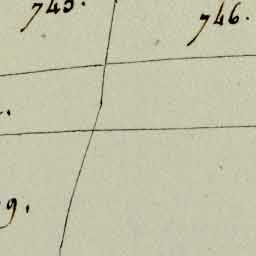 745.
746.
9.